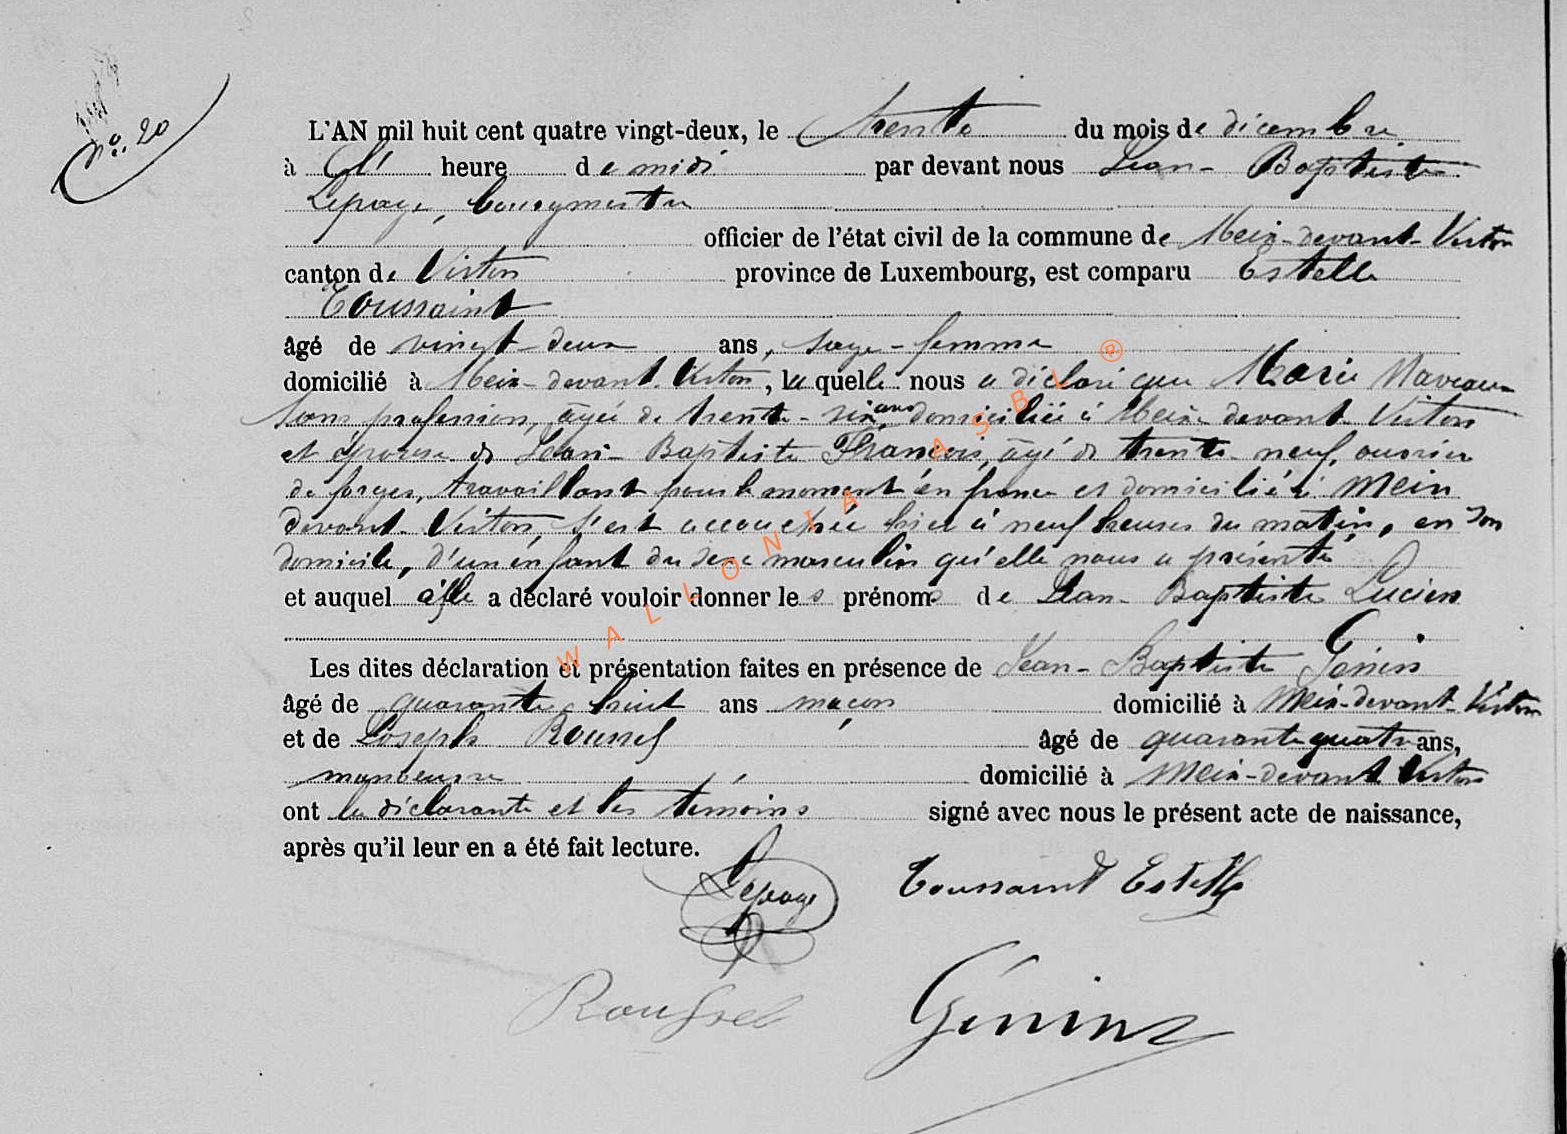 No. 20
L'AN mil huit cent quatre vingt-deux, le trente du mois de décembre
à l' heure de midi par devant nous Jean-Baptiste
Lepage, bourgmestre
officier de l'état civil de la commune de Meix-devant-Virton
canton de Virton province de Luxembourg, est comparu Estelle
Toussaint
âgé de vingt-deux ans, sage-femme
domicilié à Meix-devant-Virton, la quelle nous a déclaré que Marie Naveaux
sans profession, âgée de trente-six ans domiciliée à Meix-devant-Virton
et épouse de Jean-Baptiste François, âgé de trente-neuf, ouvrier
de forges, travaillant pour le moment en france et domicilié à Meix
devant-Virton, s'est accouchée hier à neuf heures du matin, en son
domicile, d'un enfant du sexe masculin qu'elle nous a présenté
et auquel elle a déclaré vouloir donner les prénoms de Jean-Baptiste Lucien
Les dites déclaration et présentation faites en présence de Jean-Baptiste Génin
âgé de quarante-huit ans maçon domicilié à Meix-devant-Virton
et de Joseph Roussel âgé de quarante quatre ans,
manœuvre domicilié à Meix-devant-Virton
ont la déclarante et les témoins signé avec nous le présent acte de naissance,
après qu'il leur en a été fait lecture.
Lepage Toussaint Estelle
Roussel Génin
WALLONIA ASBL ®